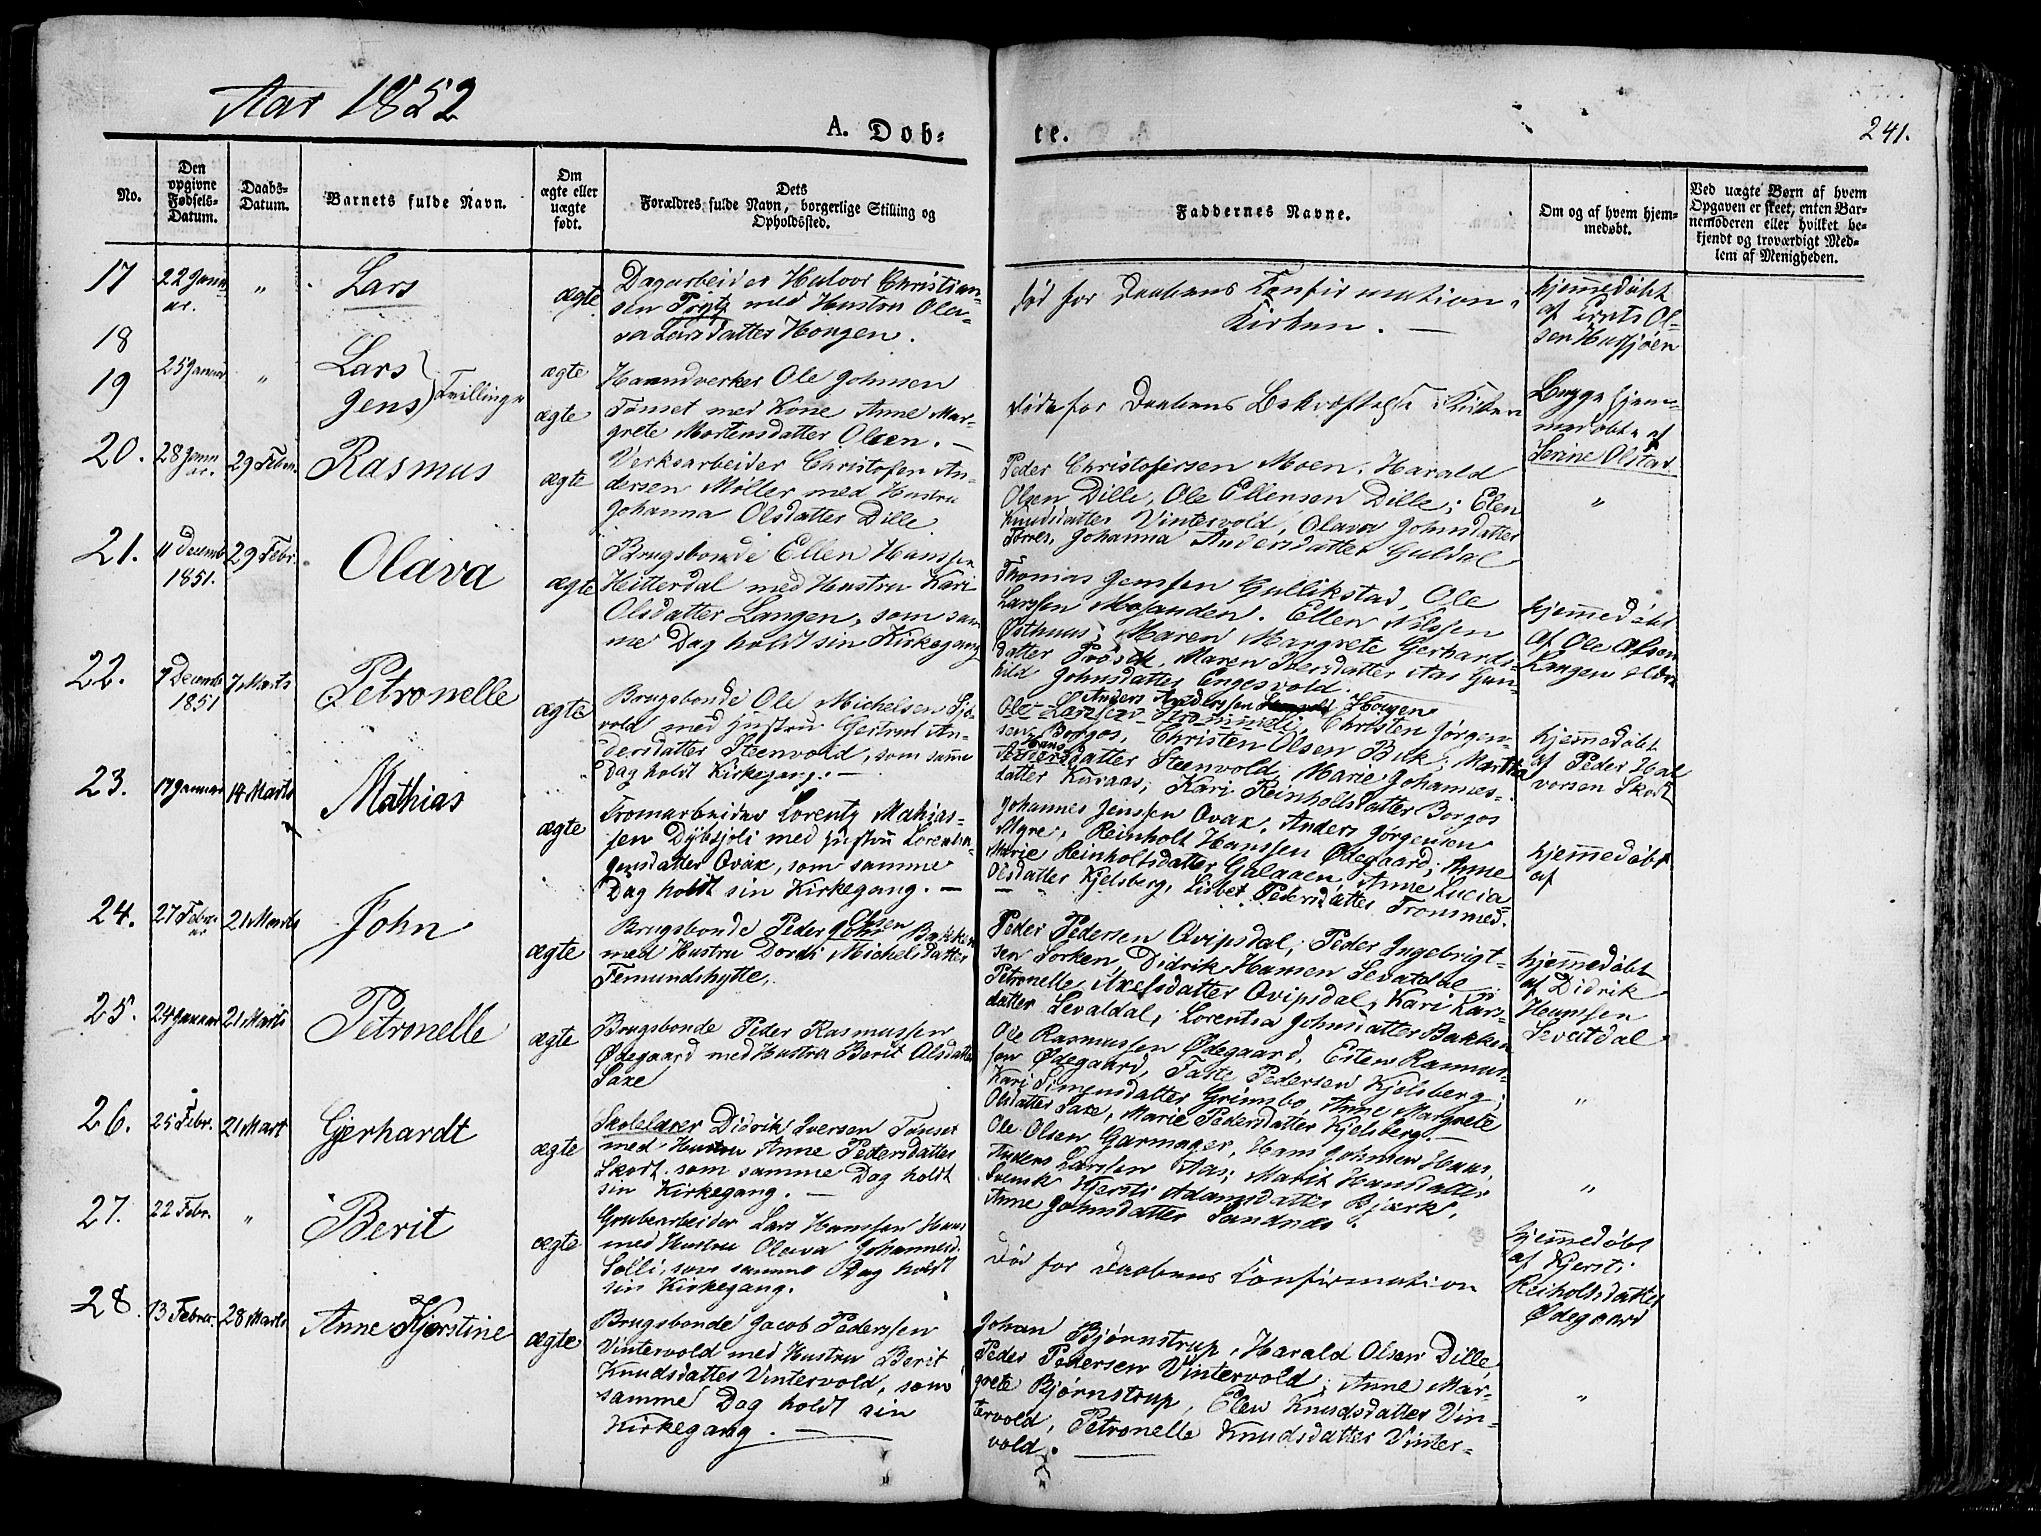 Aar 1852
A. Døb-
te.
241.
No.
Den opgivne Fødsels-Datum.
Daabs-Datum.
Barnets fulde Navn.
Om ægte eller uægte født.
Dets
Forældres fulde Navn, borgerlige Stilling og
Opholdssted.
Faddernes Navne.
Om og af hvem hjem-
medøbt.
Ved uægte Børn af hvem
Opgaven er skeet, enten Bar-
nemoderen eller hvilket be-
kjendt og troværdigt Med-
lem af Menigheden.
17
22 Janu
ar.
"
Lars
ægte
Dagarbeider Halvor Christian-
sen Prytz med Hustru Ole-
va Larsdatter Hougen.
død for Daabens Confirmation i
Kirken. —
hjemmedøbt
af Ernts Ol-
sen Hussjøen
18
19
25 Januar
"
Lars
Jens
Tvillinge
ægte
ægte
Haandverker Ole Johnsen
Tønset med Kone Anne Mar-
grete Mortensdatter Olsen. —
døde for Daabens Bekræftelse i Kirken
Begge hjem-
medøbte af
Serine Olstad
20.
28 Janu
ar.
29 Febr.
Rasmus
ægte
Verksarbeider Christofen An-
dersen Møller med Hustru
Johanna Olsdatter Dille
Peder Christofersen Moen. Harald
Olsen Dille, Ole Ellensen Dille; Elen
Knudsdatter Vintervold, Olava Johnsdatter
Torres, Johanna Andersdatter Guldal
"
21.
11 Decemb
1851.
29 Febr.
Olava
ægte
Brugsbonde Ellen Hanssen
Hitterdal med Hustru Kari
Olsdatter Langen, som sam
me Dag holdt sin Kirkegang
Thomas Jenssen Gullikstad, Ole
Larssen Mosanden. Ellen Nilssen
Østhuus; Maren Margrete Gerhards-
datter Prøsch, Maren Iversdatter Aas Gun-
hild Johnsdatter Engesvold.
hjemmedøbt
af Ole Olsen
Langen eldre
22.
9 Decemb
1851
7 Marts
Petronelle
ægte
Brugsbonde Ole Michelsen Sjø-
vold med Hustru Gertrud An-
dersdatter Steenvold, som samme
Dag holdt Kirkegang. —
Anders Anderssen Hougen
Ole Larssen Trommeli, Christen Jørgen-
sen Borgos, Christen Olsen Buk; Martha
Hans
datter Steenvold, Marie Johannes-
datter Kuraas; Kari Reinholtsdatter Borgos
hjemmedøbt
af Peder Hal
vorsen Skott
23.
17 Januar
14 Marts
Mathias
ægte
Tromarbeider Lorentz Mathias-
sen Dybsjøli med Hustru Lorentse
Jensdatter Qvax, som samme
Dag holdt sin Kirkegang. —
Johannes Jenssen Qvax, Anders Jørgensen
Myre, Reinholt Hanssen Ødegaard; Anne
Marie Reinholtsdatter Galaaen, Anne Lucia
Olsdatter Kjelsberg, Lisbet Pedersdatter Trommed.
hjemmedøbt
af
24.
27 Febru
ar
21 Marts
John
ægte
Olsen
Brugsbonde Peder John Bakken
med Hustru Dordi Michelsdatter
Femundshytte,
Peder Pedersen Qvipsdal, Peder Ingebrigt-
sen Sorken, Didrik Hansen Sevatdal
Petronelle Axelsdatter Qvipsdal, Kari Lars-
datter Sevaldal, Lorentsa Johnsdatter Bakken
hjemmedøbt
af Didrik
Hanssen
Sevatdal
25.
24 Januar
21 Marts
Petronelle
ægte
Brugsbonde Peder Rasmussen
Ødegaard med Hustru Berit Olsdatter
Saxe
Ole Rasmussen Ødegaard, Esten Rasmus-
sen Ødegaard, Faste Pedersen Kjelsberg;
Kari Simensdatter Grimbo, Anne Margrete
Olsdatter Saxe, Marie Pedersdatter Kjelsberg. —
"
26.
25 Febr.
21 Mart
Gjerhardt
ægte
Skolelærer Didrik Iversen Tønset
med Hustru Anne Pedersdatter
Skott som samme Dag holdt
sin Kirkegang. —
Ole Olsen Garmager, Hans Johnsen Haas,
Anders Larssen Aas; Marit Hansdatter
Svensk Kjersti Adamsdatter Bjørk,
Anne Johnsdatter Sandnes.
"
27.
22 Febr.
"
Berit
ægte
Grubearbeider Lars Hanssen Haas
med Hustru Olava Johannesd.
Solli, som samme Dag holdt
sin Kirkegang.
Død for Daabens Confirmation
hjemmedøbt
af Kjersti
Reiholtsdatter
Ødegaard
28.
13 Februr.
28 Marts
Anne Kjerstine
ægte
Brugsbonde Jacob Pederssen
Vintervold med Hustru Berit
Knudsdatter Vintervold, som
samme Dag holdt sin
Kirkegang. —
Johan Bjørnstrup, Harald Olsen Dille,
Peder Pedersen Vintervold; Anne Mar-
grete Bjørnstrup, Elen Knudsdatter Vin-
tervold, Petronelle Knudsdatter Vinter-
vold. —
"